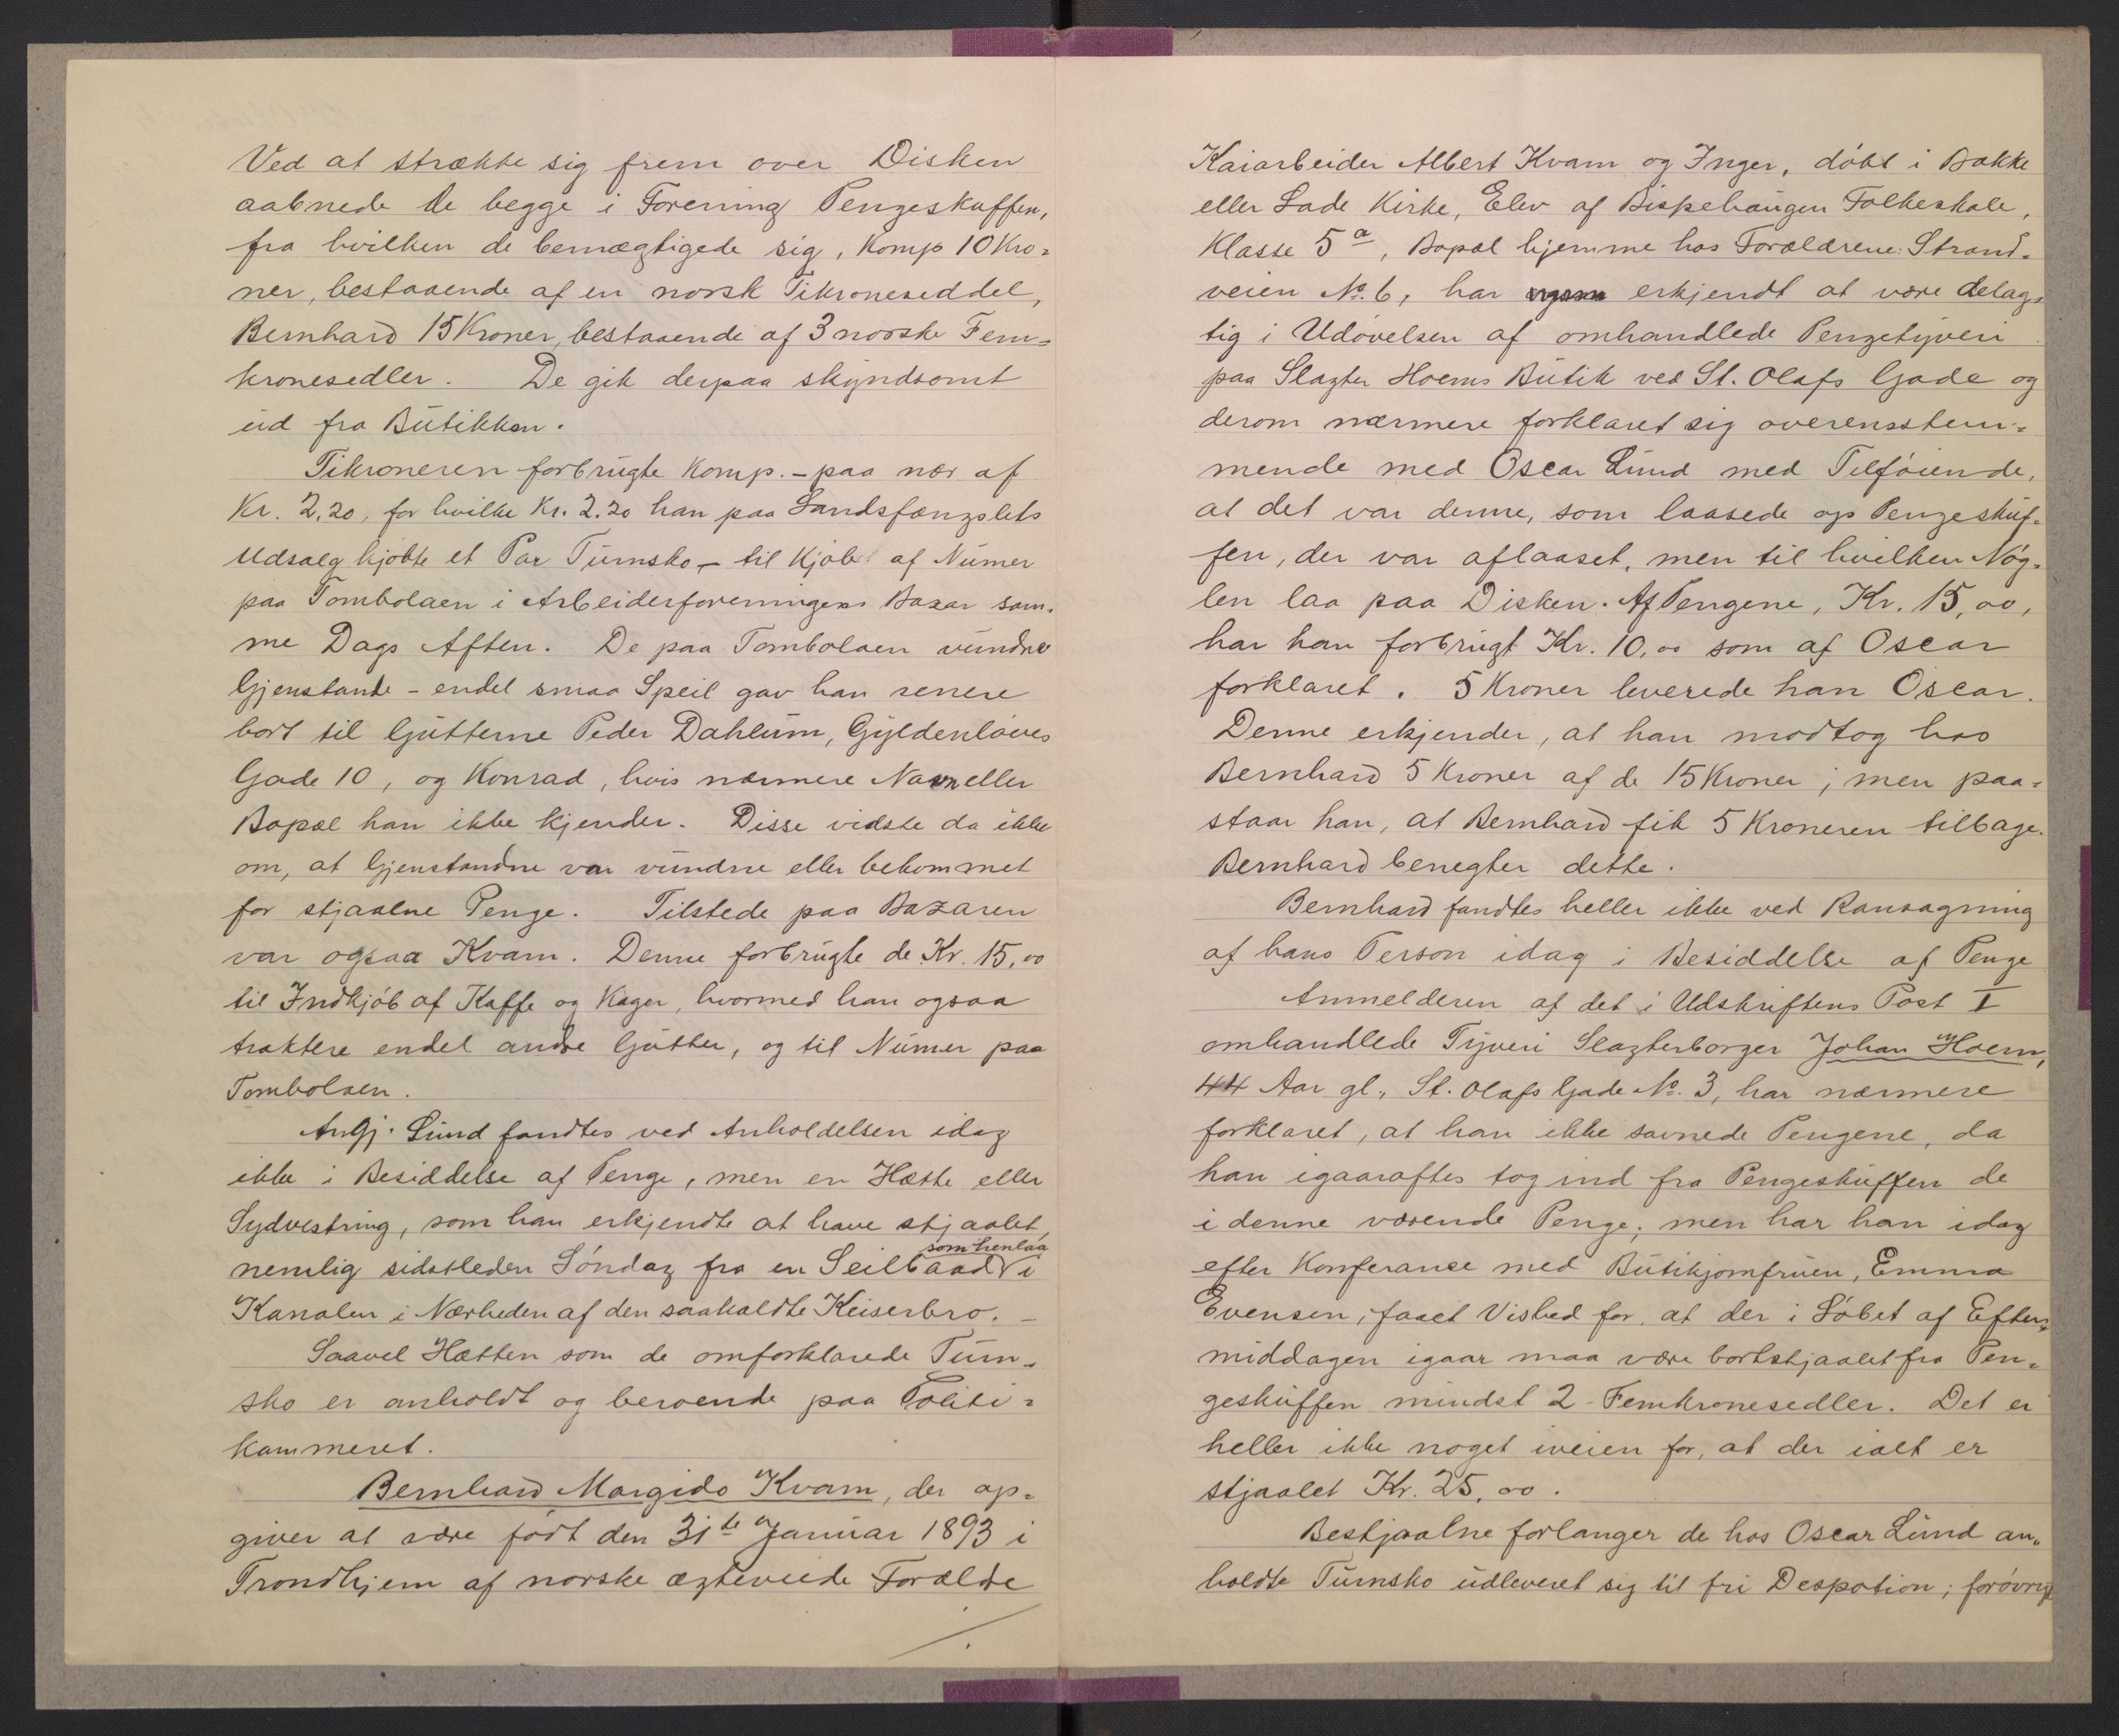 Ved at strække sig frem over Disken
aabnede de begge i Forening Pengeskuffen,
fra hvilken de bemægtigede sig, Komp 10 Kro=
ner, bestaaende af en norsk Tikroneseddel,
Bernhard 15 Kroner, bestaaende af 3 norske Fem=
kronesedler. De gik derpaa skyndsomt
ud fra Butikken.
Tikroneren forbrugte Komp. - paa nær af
Kr. 2,20, for hvilke Kr. 2.20 han paa Landsfængslets
Udsalg kjøbte et Par Turnsko - til Kjøb af Numer
paa Tombolaen i Arbeiderforeningens Bazar sam=
me Dags Aften. De paa Tombolaen vundne
Gjenstande - endel smaa Speil gav han senere
bort til Gutterne Peder Dahlum, Gyldenløves
Gade 10, og Konrad, hvis nærmere Navn eller
Bopæl han ikke kjender. Disse vidste da ikke
om, at Gjenstandne var vundne eller bekommet
for stjaalne Penge. Tilstede paa Bazaren
var ogsaa Kvam. Denne forbrugte de Kr. 15,00
til Indkjøb af Kaffe og Kager, hvormed han ogsaa
traktere endel andre Gutter, og til Numer paa
Tombolaen.
Angj. Lund fandtes ved Anholdelsen idag
ikke i Besiddelse af Penge, men en Hætte eller
Sydvestring, som han erkjendte at have stjaalet,
nemlig sidstleden Søndag fra en Seilbaad som henlaa i
Kanalen i Nærheden af den saakaldte Keiserbro. -
Saavel Hætten som de omforklarede Turn=
sko er anholdt og beroende paa Politi=
kammeret.
Bernhard Margido Kvam, der op=
giver at være født den 31te Januar 1893 i
Trondhjem af norske ægteviede Forældre
Kaiarbeider Albert Kvam og Inger, døbt i Bakke
eller Lade Kirke, Elev af Bispehaugen Folkeskole,
Klasse 5a, Bopæl hjemme hos Forældrene: Strand=
veien No. 6, har erkjendt at være delag=
tig i Udøvelsen af omhandlede Pengetyveri
paa Slagter Hoems Butik ved St. Olafs Gade og
derom nærmere forklaret sig overensstem=
mende med Oscar Lund med Tilføiende,
at det var denne, som laasede op Pengeskuf=
fen, der var aflaaset, men til hvilken Nøg=
len laa paa Disken. Af Pengene, Kr. 15,00,
har han forbrugt Kr. 10,00 som af Oscar
forklaret. 5 Kroner leverede han Oscar.
Denne erkjender, at han modtog hos
Bernhard 5 Kroner af de 15 Kroner; men paa=
staar han, at Bernhard fik 5 Kroneren tilbage.
Bernhard benegter dette.
Bernhard fandtes heller ikke ved Ransagning
af hans Person idag i Besiddelse af Penge
Anmelderen af det i Udskriftens Post I
omhandlede Tyveri Slagterborger Johan Hoem,
44 Aar gl., St. Olafs Gade No. 3, har nærmere
forklaret, at han ikke savnede Pengene, da
han igaaraftes tog ind fra Pengeskuffen de
i denne værende Penge; men har han idag
efter Konferanse med Butikjomfruen, Emma
Evensen, faaet Vished for, at der i Løbet af Efter=
middagen igaar maa være bortstjaalet fra Pen=
geskuffen mindst 2 Femkronesedler. Det er
heller ikke noget iveien for, at der ialt er
stjaalet Kr. 25,00.
Bestjaalne forlanger de hos Oscar Lund an=
holdte Turnsko udleveret sig til fri Despotion; forøvrig